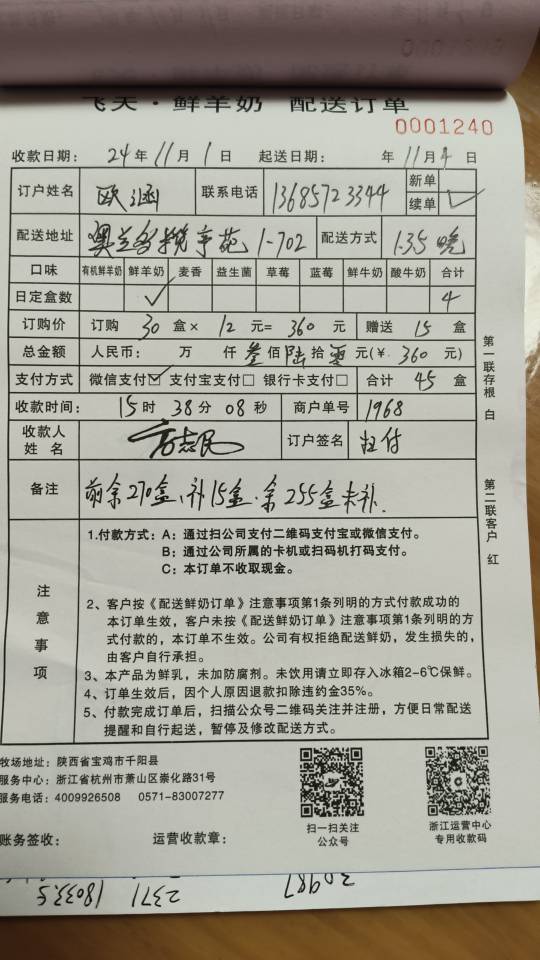 飞天·鲜羊奶 配送订单
0001240
收款日期: 24年11月1日 起送日期: 年11月4日
订户姓名 欧涵 联系电话 13685723344 新单
续单 ✓
配送地址 1-702 配送方式 1.35晚
口味 有机鲜羊奶 鲜羊奶 麦香 益生菌 草莓 蓝莓 鲜牛奶 酸牛奶 合计
日定盒数 ✓ 4
订购价 订购 30 盒× 12 元= 360 元 赠送 15 盒
总金额 人民币: 万 仟 叁佰 陆拾 零元(¥. 360 元)
支付方式 微信支付☑ 支付宝支付□ 银行卡支付□ 合计 45 盒
收款时间: 15时 38分 08秒 商户单号 1968
收款人姓名 订户签名 扫付
备注 前余270盒、补15盒.余255盒未补.
注意事项
1.付款方式: A: 通过扫公司支付二维码支付宝或微信支付。
B: 通过公司所属的卡机或扫码机打码支付。
C: 本订单不收取现金。
2、客户按《配送鲜奶订单》注意事项第1条列明的方式付款成功的
本订单生效, 客户未按《配送鲜奶订单》注意事项第1条列明的方
式付款的, 本订单不生效。公司有权拒绝配送鲜奶, 发生损失的,
由客户自行承担。
3、本产品为鲜乳, 未加防腐剂。未饮用请立即存入冰箱2-6℃保鲜。
4、订单生效后, 因个人原因退款扣除违约金35%。
5、付款完成订单后, 扫描公众号二维码关注并注册, 方便日常配送
提醒和自行起送, 暂停及修改配送方式。
第一联存根 白
第二联客户 红
牧场地址: 陕西省宝鸡市千阳县
服务中心: 浙江省杭州市萧山区崇化路31号
服务电话: 4009926508 0571-83007277
扫一扫关注
公众号
浙江运营中心
专用收款码
账务签收: 运营收款章:
30987
2371
18033.5